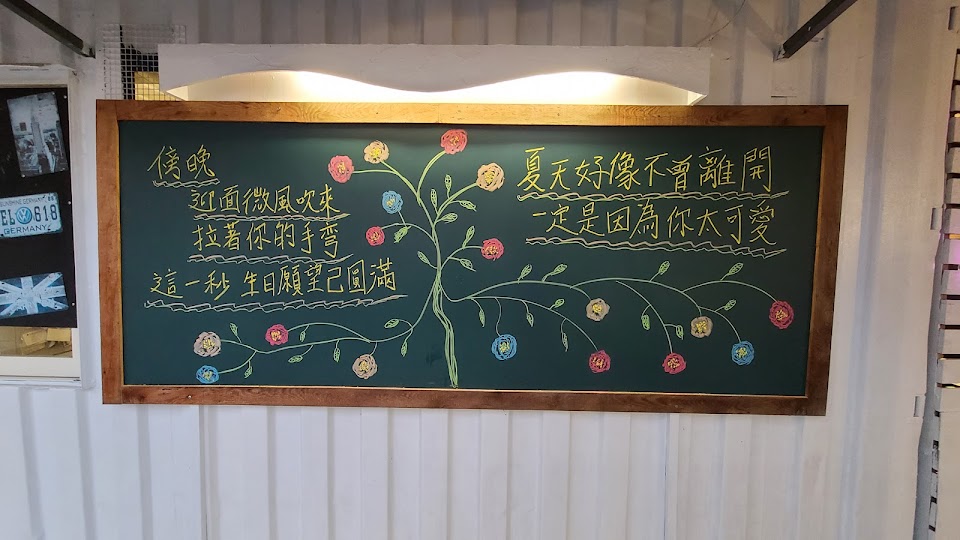 傍晚
迎面微風吹來
拉著你的手彎
這一秒 生日願望已圓滿
夏天好像不曾離開
一定是因為你太可愛
EL 618
GERMANY